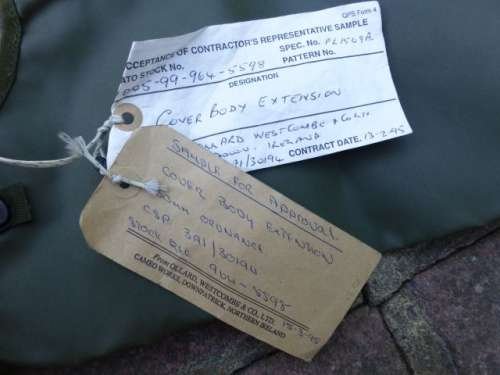 QPS Form 4
ACCEPTANCE OF CONTRACTOR'S REPRESENTATIVE SAMPLE
NATO STOCK No. SPEC. No.
1005-99-964-5598 PATTERN No.
DESIGNATION
COVER BODY EXTENSION
OLLARD WESTCOMBE & CO.
IRELAND
391/30194 CONTRACT DATE. 13-2-95
SAMPLE FOR APPROVAL.
COVER BODY EXTENSION
ORDNANCE
391/30194
STOCK 964-5598
From OLLARD, WESTCOMBE & CO. LTD.
CAMEO WORKS, DOWNPATRICK, NORTHERN IRELAND
13-2-95